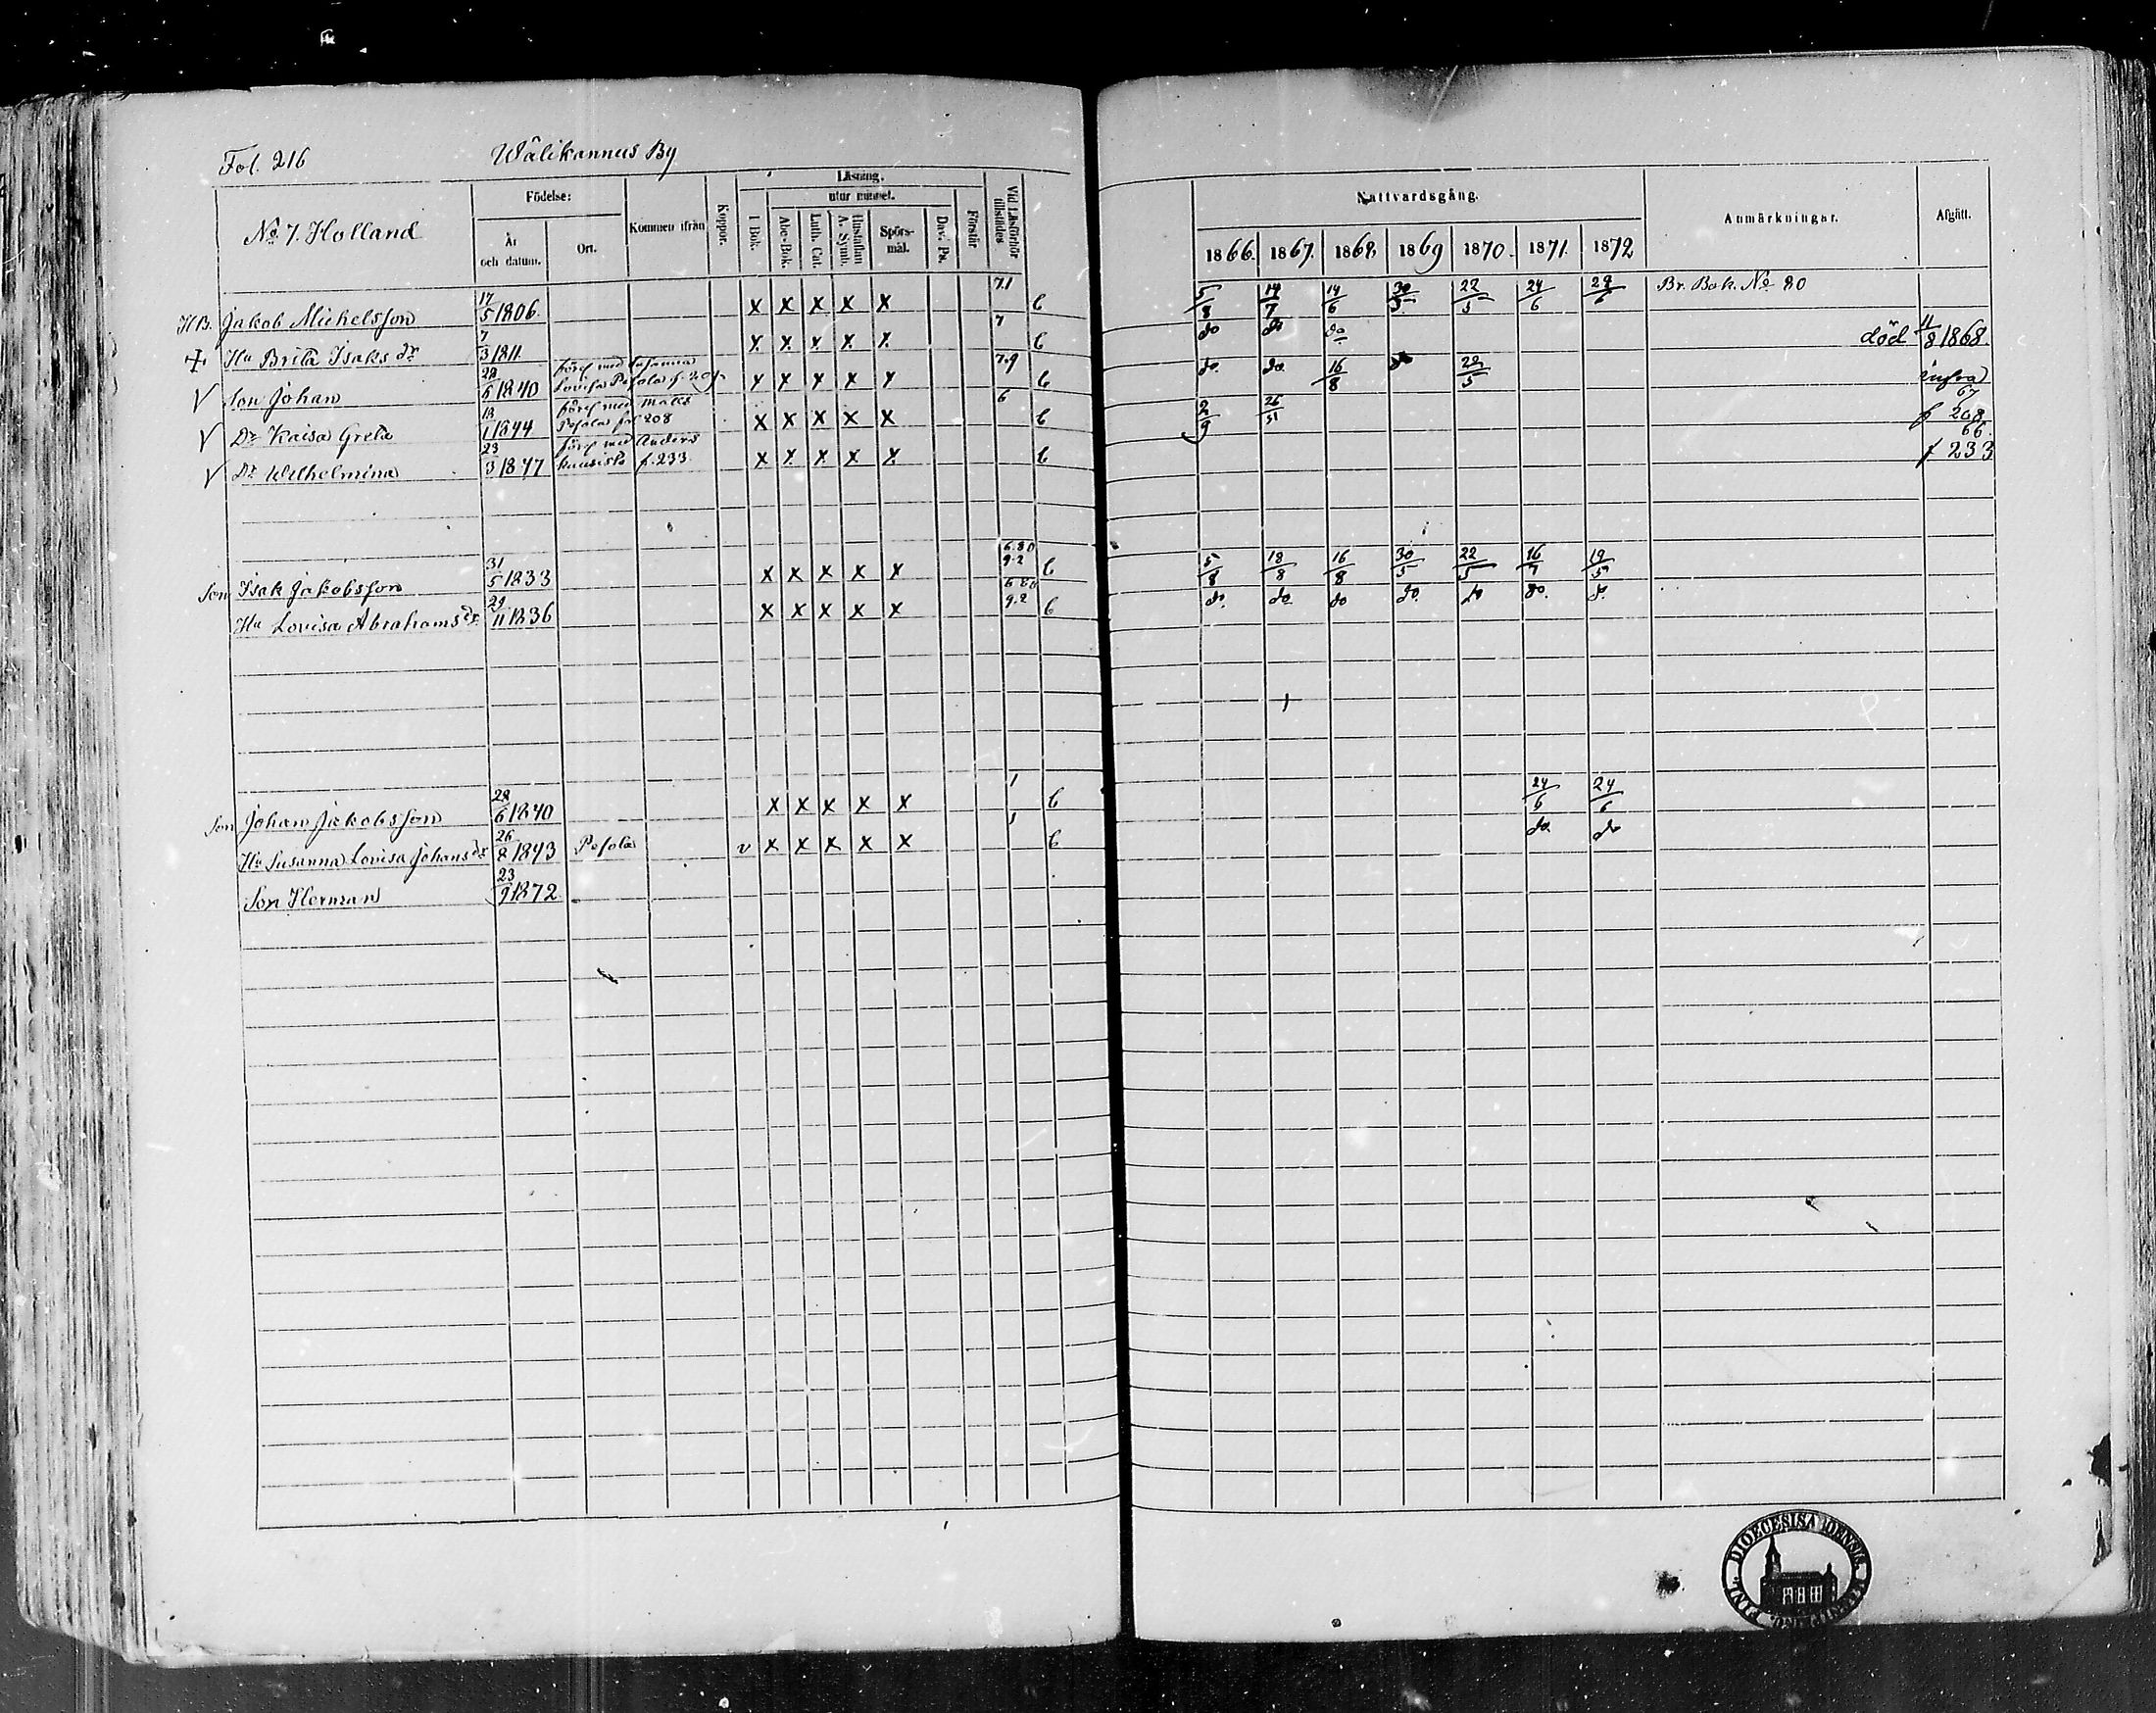 Fol. 216 Wälikannus By
No 7. Holland
Födelse:
År och datum.
Ort.
Kommen ifrån
Koppor.
Läsning.
utur minnet.
I Bok.
Abc-Bok.
Luth. Cat.
Hustaflan A. Symb.
Spörs-mål.
Dav. Ps.
Förstår
Vid Läsförhör tillstädes
Nattvardsgång.
1866. 1867. 1868. 1869 1870. 1871. 1872
Anmärkningar.
Afgått.
HB. Jakob Michelsson 17/5 1806. X X X X X 7.1 6 5/8 14/7 14/6 30/5 22/5 24/6 Br. Bok. No 80
+ Hu Brita Isaks dr 7/3 1811 X X X X X 7 6 do do do död 11/8 1868.
V Son Johan 28/6 1840 förel med Susanna Lovisa Pesola f. 209 X X X X X 7.9 6 do. do. 16/8 do 22/5 infra
V Dr Kaisa Greta 1 1844 förel med Matts Pesola fol 208 X X X X X 6 6 2/9 26/ 67 f 208
V Dr Wilhelmina 23/3 1847 förel med Anders f. 233 X X X X X 6 66. f 233
Son Isak Jakobsson 31/5 1833 X X X X X 6.80 9.2 6 5/8 18/8 16/8 30/5 22/5 16/7 19/5
Hu Lovisa Abrahams dr 29/11 1836 X X X X X 6.80 9.2 6 do. do. do do. do do. do.
Son Johan Jakobsson 28/6 1840 X X X X X 1 6 24/6 24/6
Hu Susanna Lovisa Johans dr 26/8 1843 Pesola v X X X X X 1 6 do. do
Son Herman 23/9 1872
FINL. DIOECESIS ABOENSIS